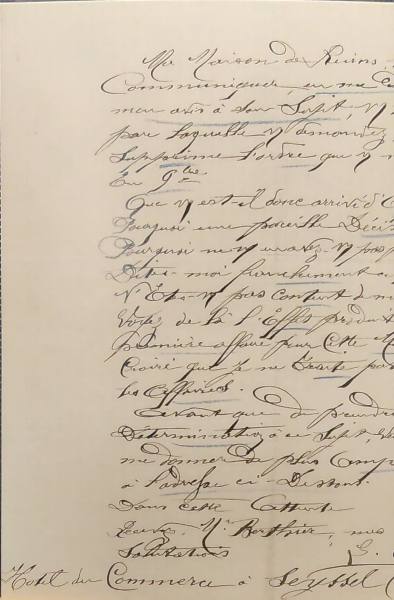 Ma Maison de Reims
Communiquer, en me
mon avis à son Sujet, V
par laquelle V demandez
Supprime l'ordre que V
En gare
Que V est-il donc arrivé d'
Pourquoi une pareille Décis
Pourquoi ne m'en avez-V pas
Dites-moi franchement
N'Etes-V pas content de
Voyez de là l'Effet produit
première affaire pour cette M
Croire que je ne traite pas
les affaires.
Avant que de prendre
Détermination à ce Sujet,
me donner de plus amp
à l'adresse ci-Dessous.
Dans cette attente
Recev. Mr Berthier, mes
Salutations
Hotel du Commerce à Seyssel (